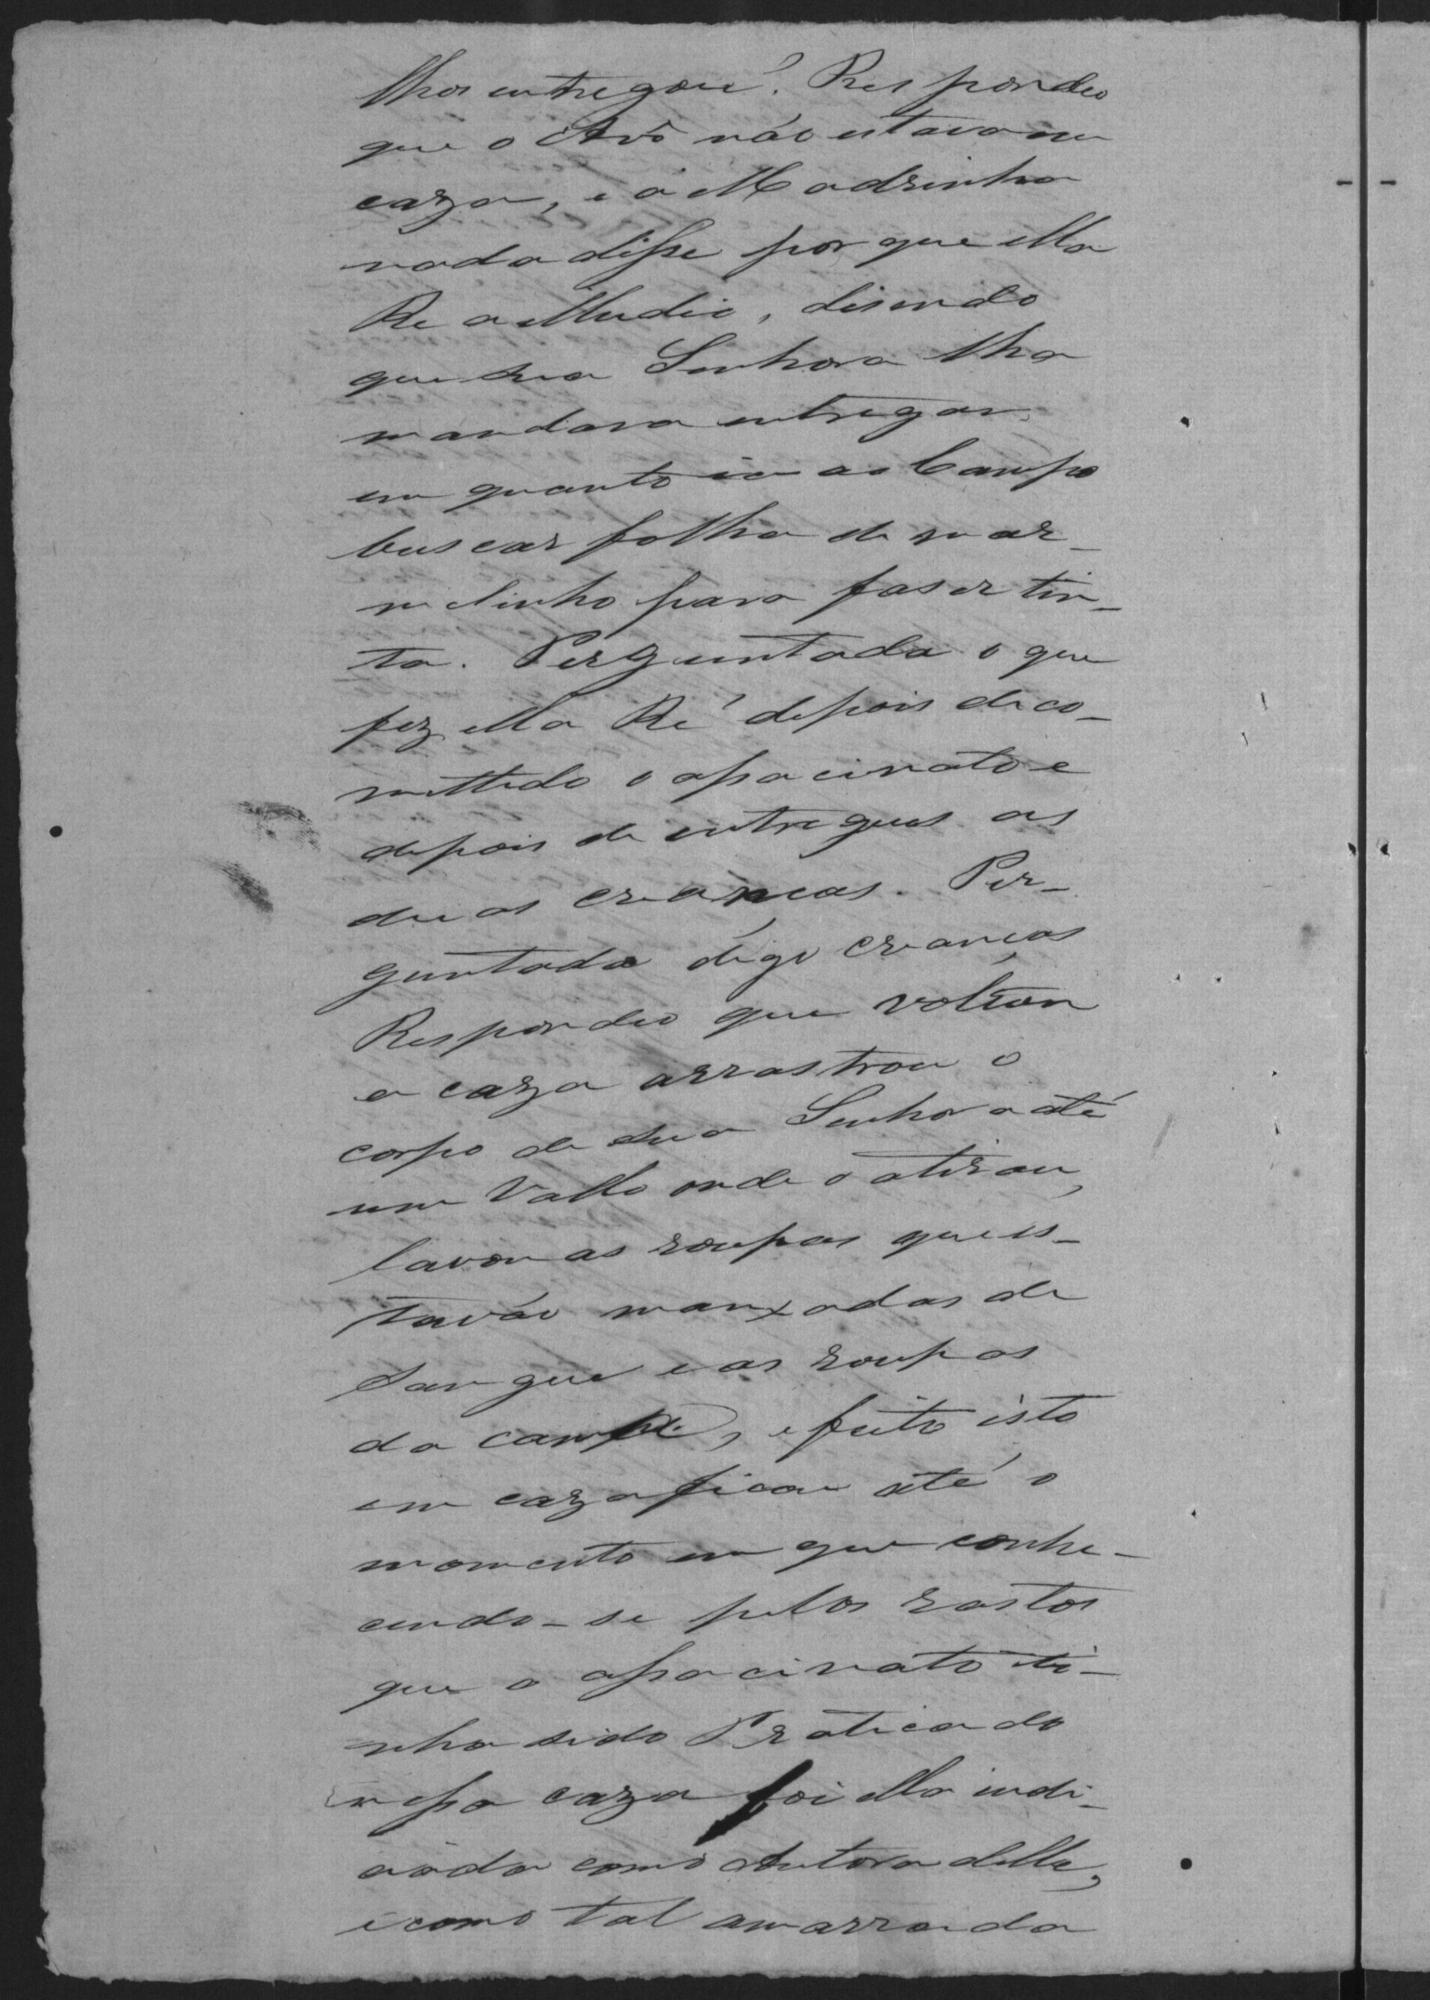 lhos entregou? Respondeo
que o Avô não estava em
caza, e a Madrinha
nada disse por que ella
Ré a illudio, disendo
que sua Senhora lha
mandava entregar,
em quanto ia ao Campo
buscar folha de mar-
melinho para faser tin-
ta. Perguntada o que
fez ella Ré depois de co-
mettido o assacinato e
depois de entregues as
duas creanças. Per-
guntada digo creanças
Respondeo que voltou
a caza arrastrou o
corpo de sua Senhora até
um Vallo onde o atirou,
lavou as roupas que es-
tavão manxadas de
sangue e as roupas
da cama, e feito isto
em caza ficou até o
momento em que conhe-
cendo-se pelos rastos
que o assacinato ti-
nha sido Praticado
nessa caza foi ella indi-
ciada como Autora delle,
e como tal amarrada